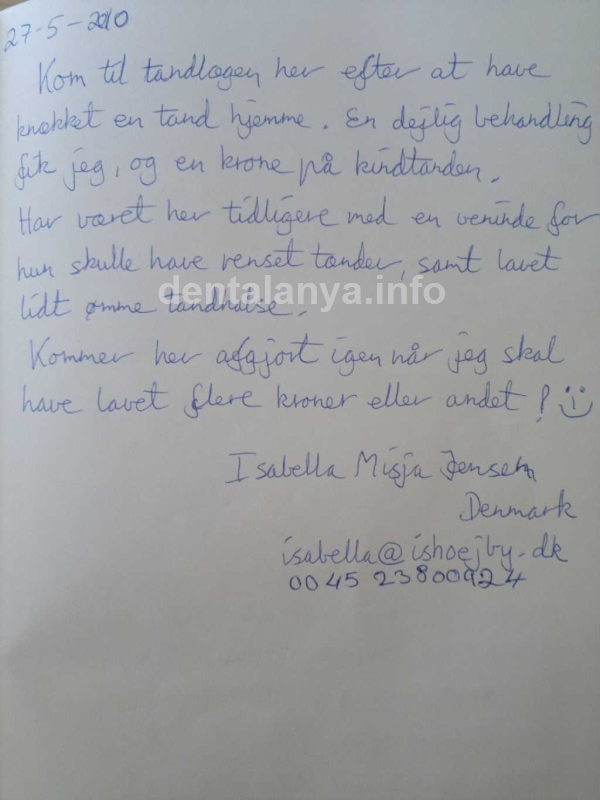 27-5-2010
Kom til tandlægen her efter at have
knækket en tand hjemme. En dejlig behandling
fik jeg, og en krone på kindtanden.
Har været her tidligere med en veninde for
hun skulle have renset tænder, samt lavet
dentalanya.info
lidt ømme tandhalse.
Kommer her afgjort igen når jeg skal
have lavet flere kroner eller andet!
Isabella Misja Jensen
Denmark
isabella@ishoejby.dk
0045 23800924